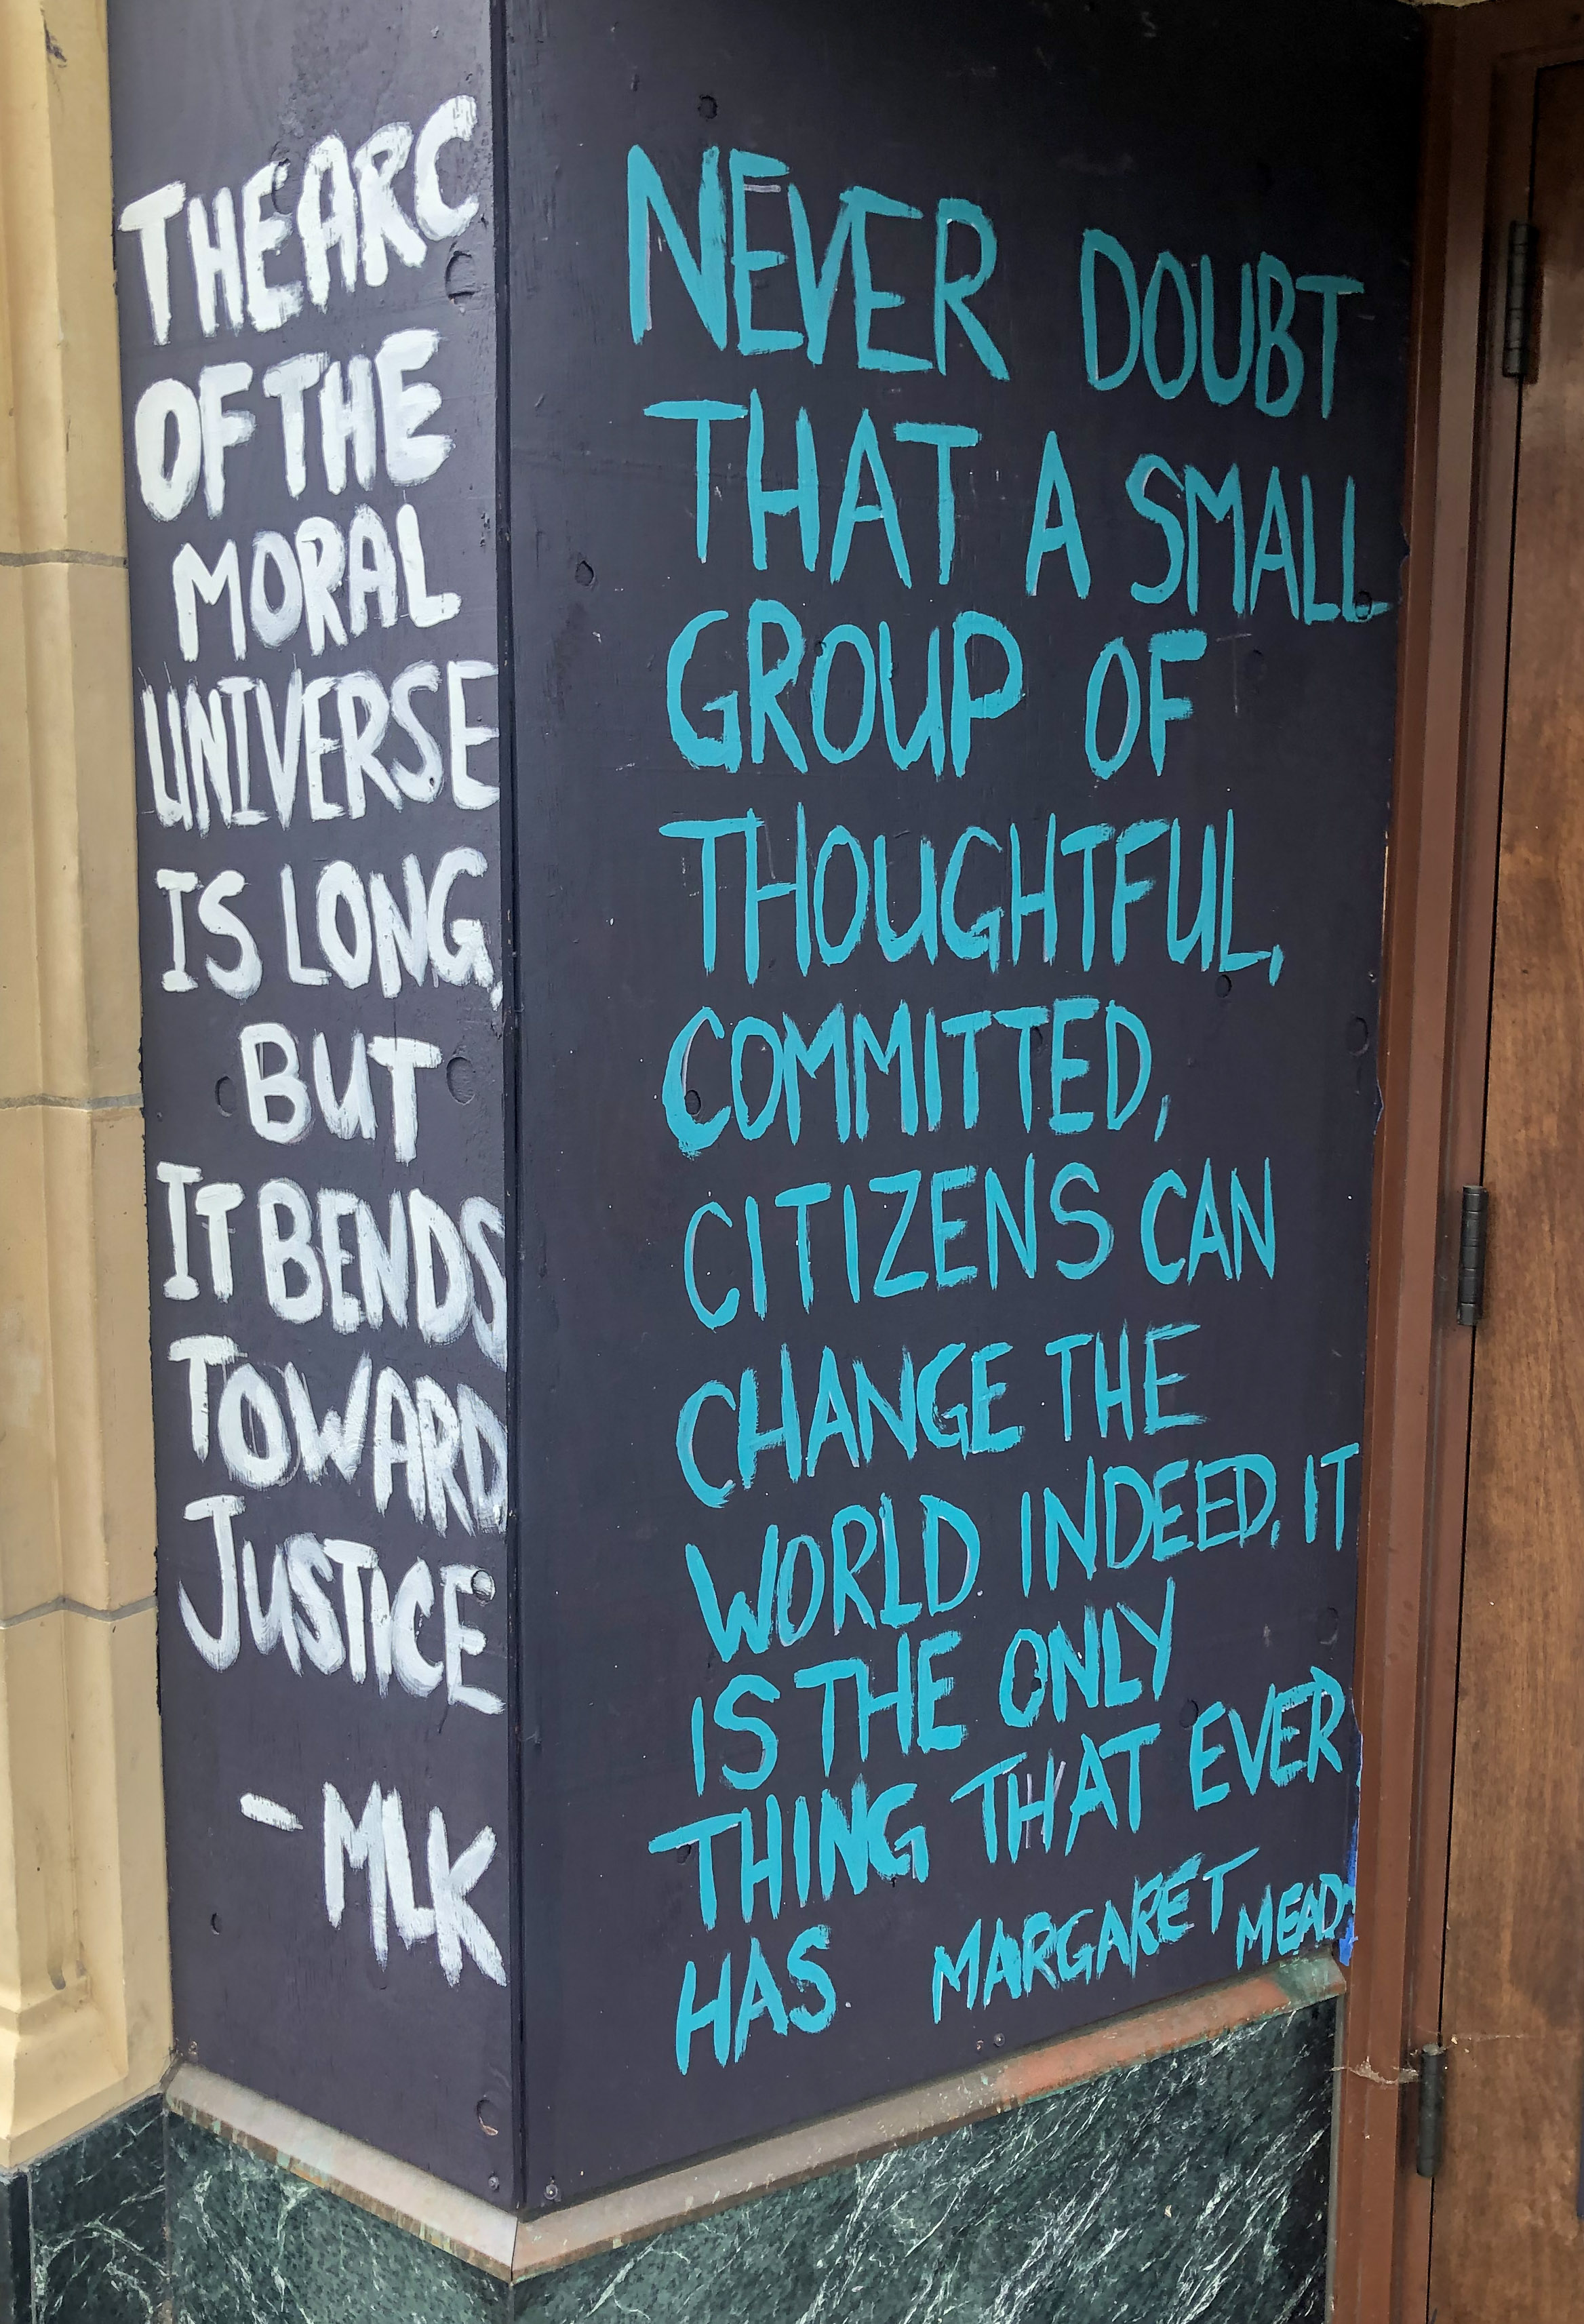 THE ARC
OF THE
MORAL
UNIVERSE
IS LONG,
BUT
IT BENDS
TOWARD
JUSTICE
- MLK
NEVER DOUBT
THAT A SMALL
GROUP OF
THOUGHTFUL,
COMMITTED,
CITIZENS CAN
CHANGE THE
WORLD INDEED, IT
IS THE ONLY
THING THAT EVER
HAS MARGARET MEAD